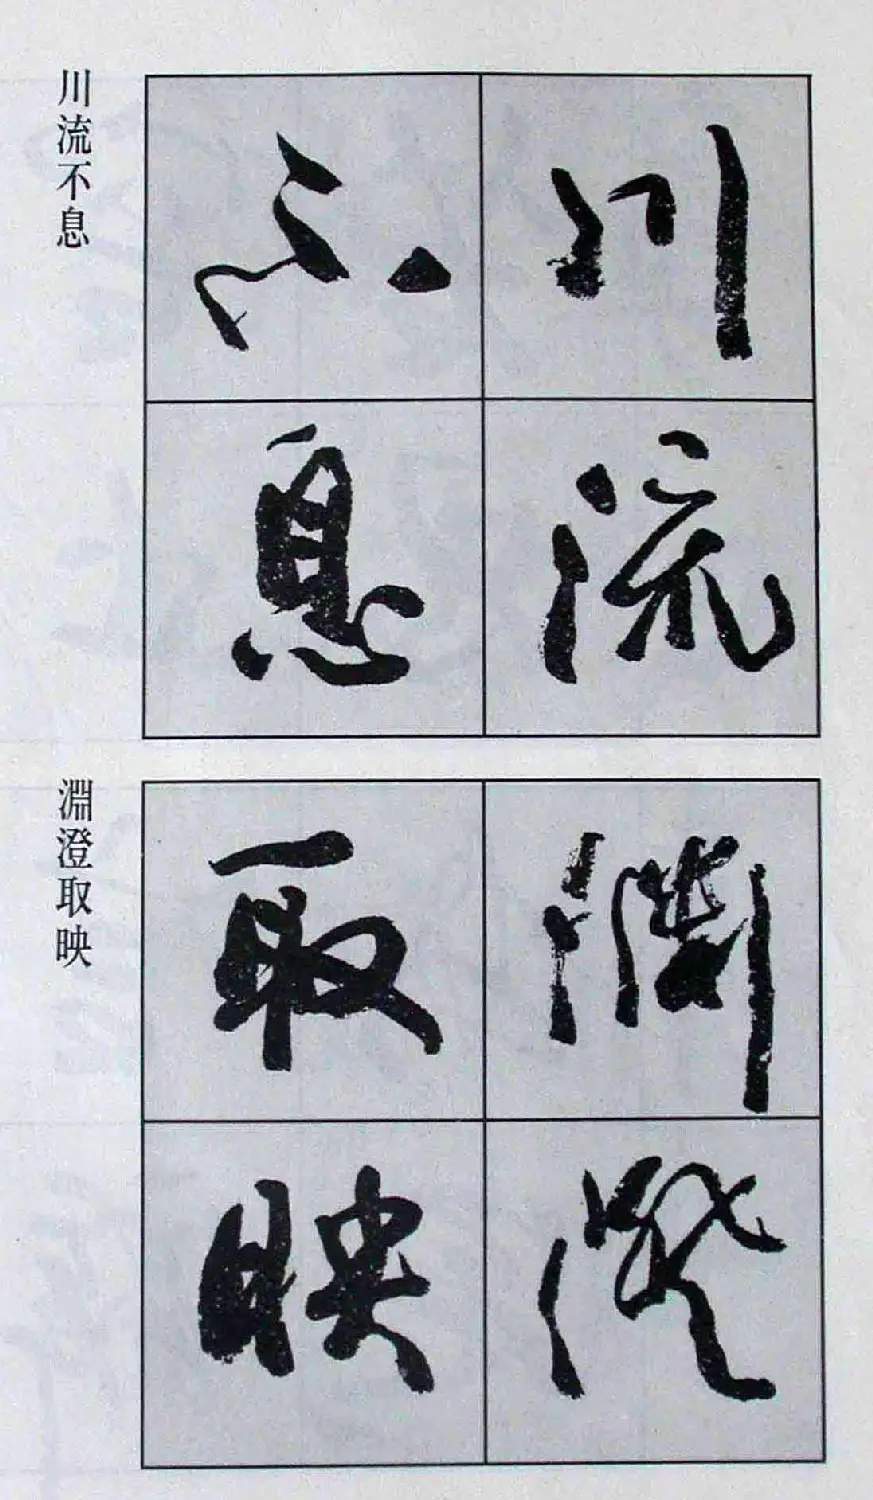 川流
不息
川流不息
淵澄
取映
淵澄取映